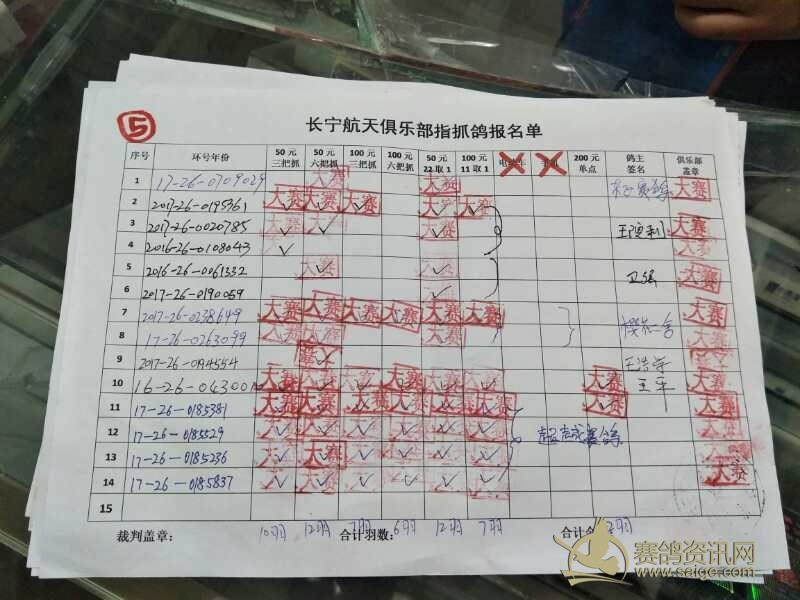 ⑤
长宁航天俱乐部指抓鸽报名单
序号 环号年份 50元三把抓 50元六把抓 100元三把抓 100元六把抓 50元22取1 100元11取1 200元单点 鸽主签名 俱乐部盖章
1 17-26-0709029 大赛 大赛 大赛
2 2017-26-0195361 大赛 大赛 大赛 大赛 大赛
3 2017-26-0020785 大赛 王 利 大赛
4 2016-26-0108043 大赛
5 2016-26-0061332 大赛 卫强 大赛
6 2017-26-0190059
7 2017-26-0238649 大赛 大赛 大赛 大赛 大赛 大赛 大赛
8 17-26-0263099 大赛 大赛 大赛
9 2017-26-0194554 王浩宇
10 16-26-043001 大赛 大赛 大赛 大赛 大赛 大赛 大赛 王军 大赛
11 17-26-0185381 大赛 大赛 大赛 大赛 大赛 大赛 大赛 大赛
12 17-26-0185529 超越赛鸽
13 17-26-0185236 大赛
14 17-26-0185837 大赛
15
裁判盖章： 10羽 12羽 合计羽数： 7羽 6羽 12羽 7羽 合计 2羽
赛鸽资讯网
www.saige.com